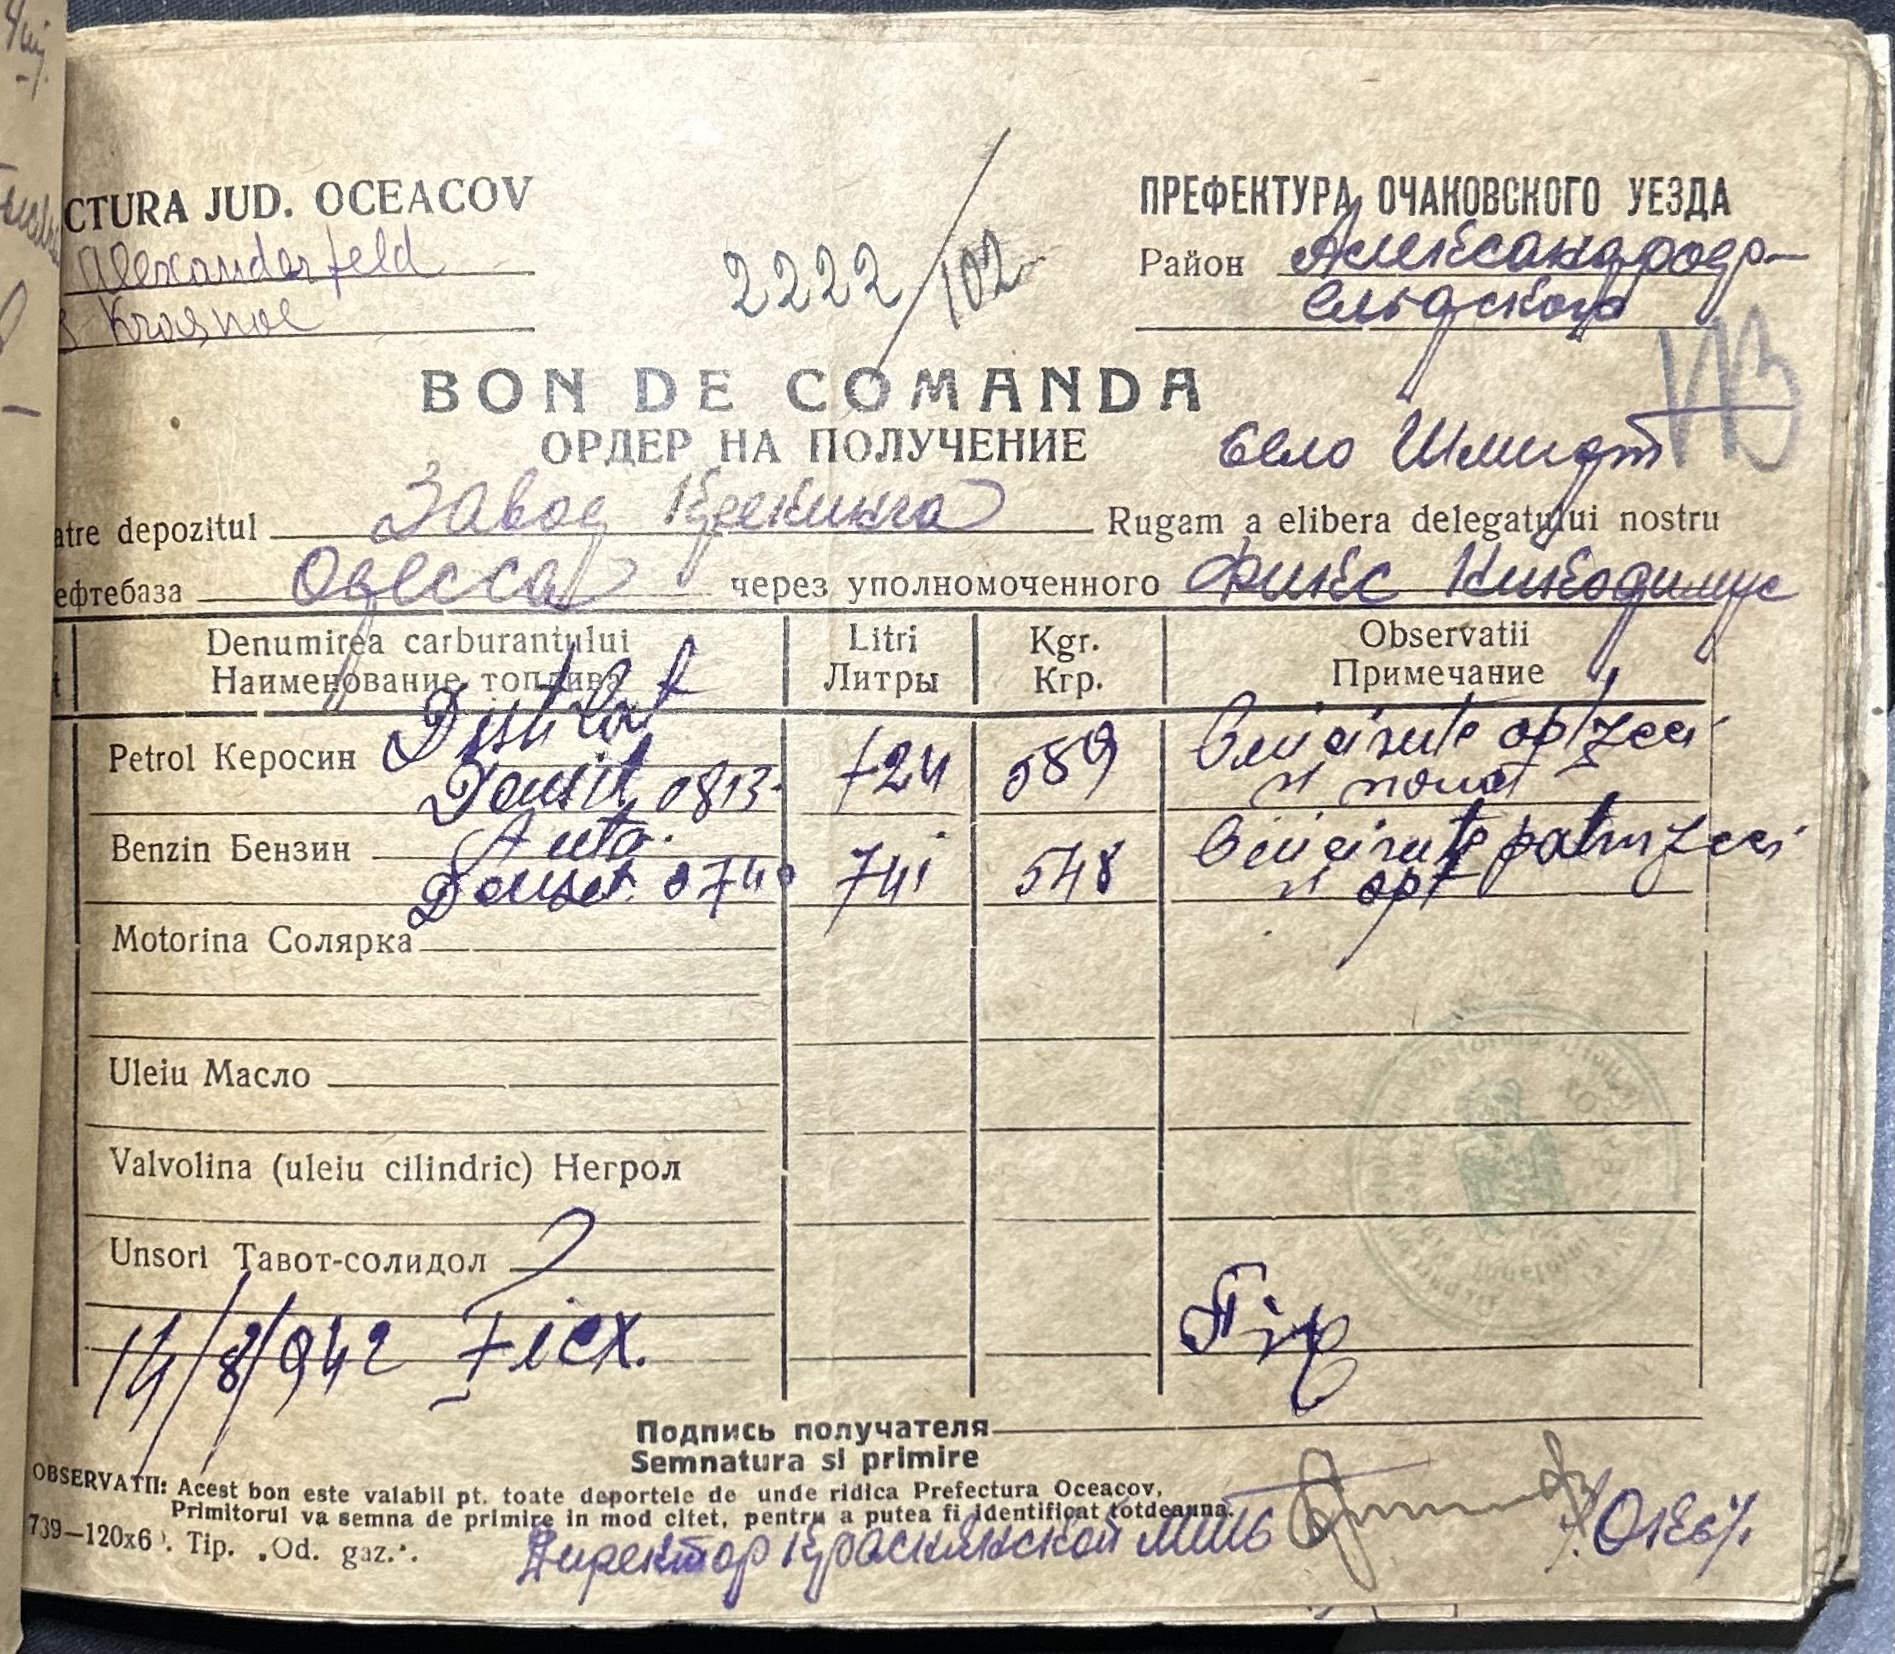 CTURA JUD. OCEACOV
ПРЕФЕКТУРА ОЧАКОВСКОГО УЕЗДА
Alexanderfeld
Krasnoe
2222/102
Район Александрод-
ельдского
BON DE COMANDA
ОРДЕР НА ПОЛУЧЕНИЕ
село Шмидт
atre depozitul Завод Крекинга Rugam a elibera delegatului nostru
ефтебаза Одесса через уполномоченного Фикс Никодимус
Denumirea carburantului Litri Kgr. Observatii
Наименование топлива Литры Кгр. Примечание
Petrol Керосин Distilat
Densit. 0813 724 589 Cincisute optzeci
si noua
Benzin Бензин Auto.
Denset. 0740 741 548 Cincisute patruzeci
si opt
Motorina Солярка
Uleiu Масло
Valvolina (uleiu cilindric) Негрол
Unsori Тавот-солидол
14/8/942 Ficx.
Подпись получателя
Semnatura si primire
OBSERVATII: Acest bon este valabil pt. toate deportele de unde ridica Prefectura Oceacov,
Primitorul va semna de primire in mod citet, pentru a putea fi identificat totdeauna.
739—120x6 . Tip. „Od. gaz.".
Директор